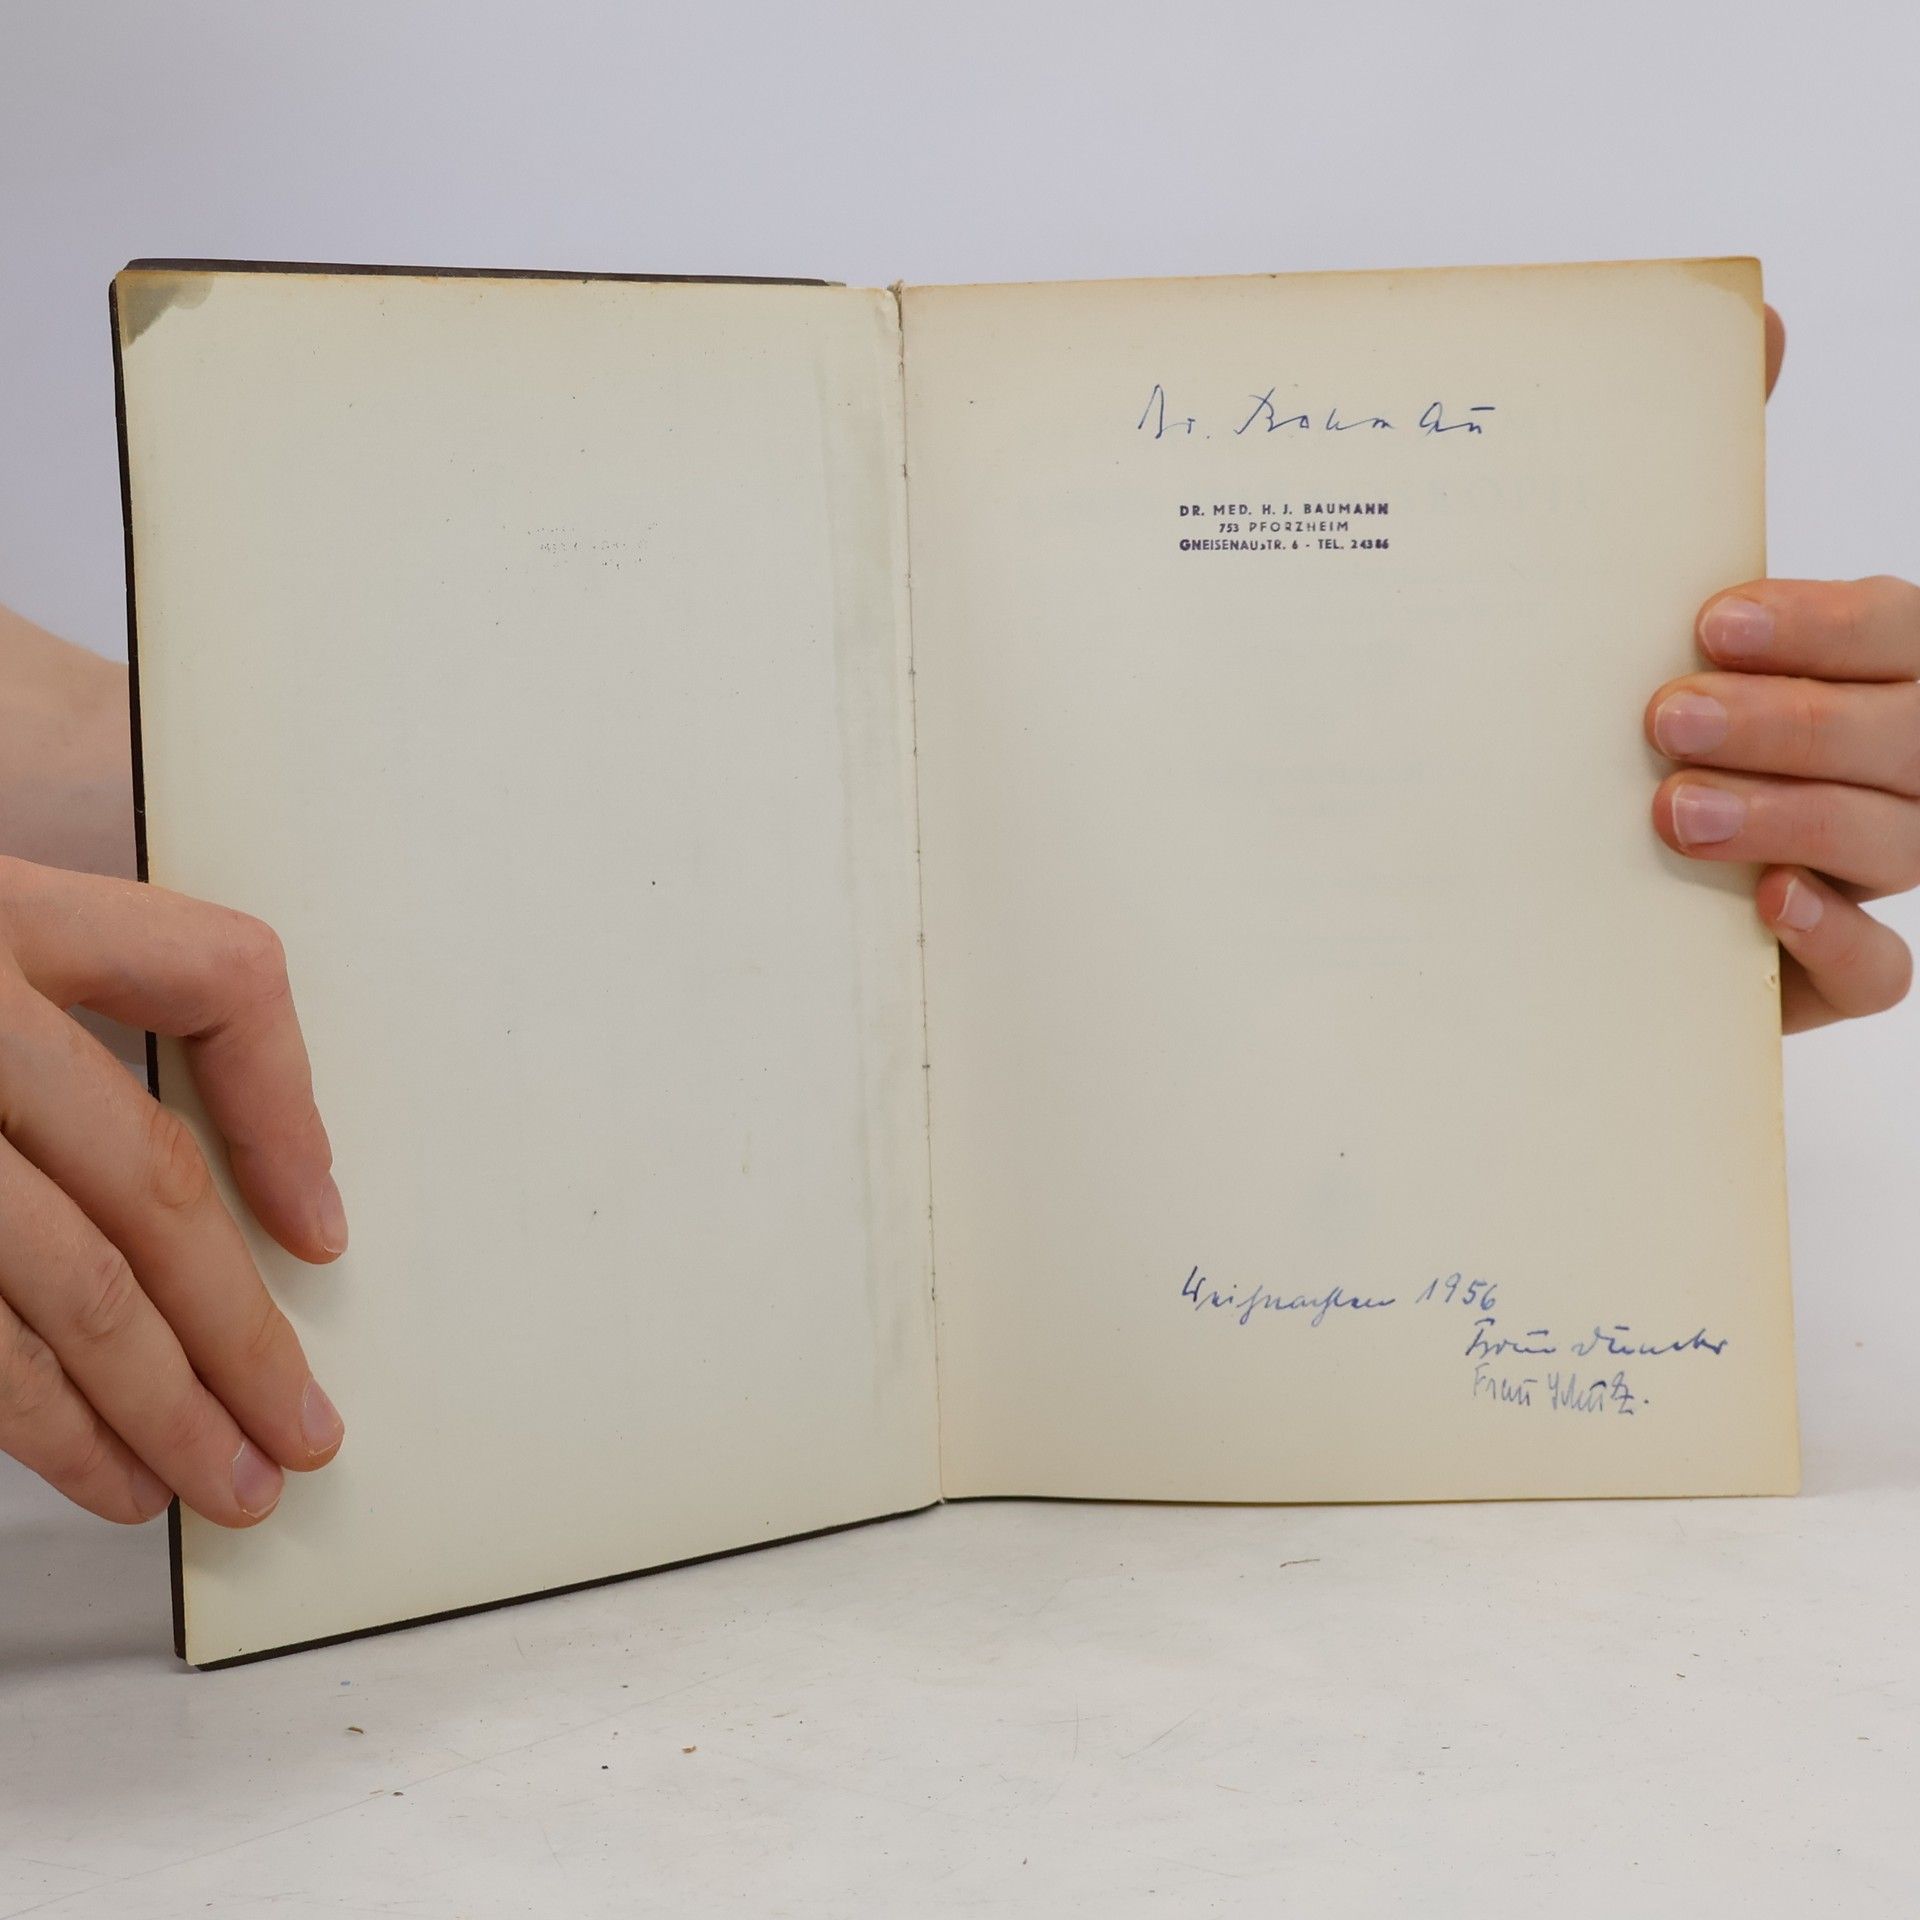 Dr. Baumann
DR. MED. H. J. BAUMANN
753 PFORZHEIM
GNEISENAUSTR. 6 - TEL. 24386
Weihnachten 1956
Frau
Frau Schütz.